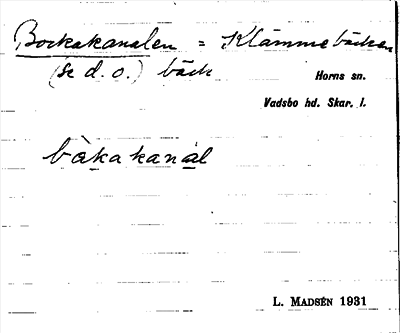 Bockakanalen = Klämmebäcken
(se d. o.) bäck
Horns sn.
Vadsbo hd. Skar. l.
bàkakanál
L. MADSÉN 1931